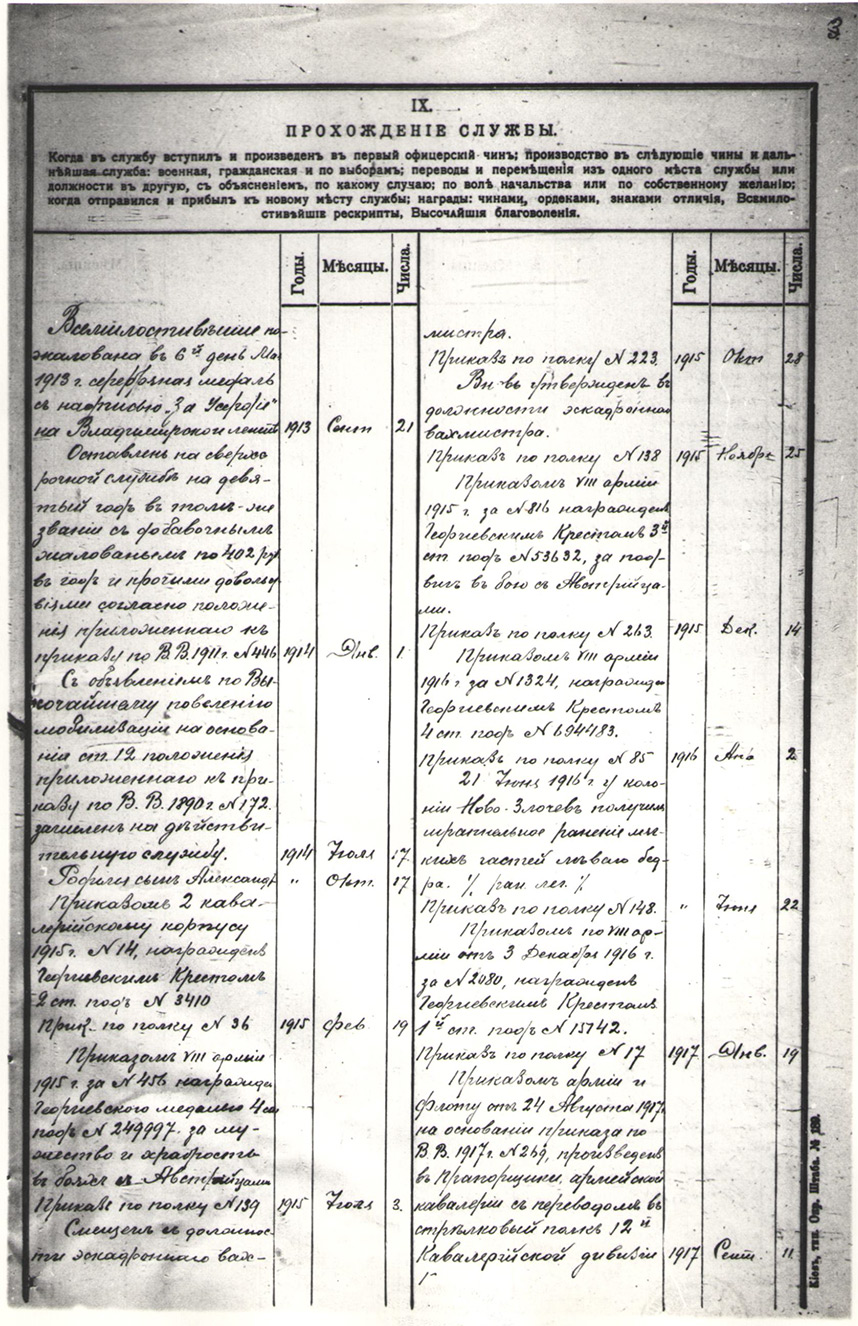 IX.
ПРОХОЖДЕНІЕ СЛУЖБЫ.
Когда въ службу вступилъ и произведенъ въ первый офицерскій чинъ; производство въ слѣдующіе чины и даль-
нѣйшая служба: военная, гражданская и по выборамъ; переводы и перемѣщенія изъ одного мѣста службы или
должности въ другую, съ объясненіемъ, по какому случаю; по волѣ начальства или по собственному желанію;
когда отправился и прибылъ къ новому мѣсту службы; награды: чинами, орденами, знаками отличія, Всемило-
стивѣйшіе рескрипты, Высочайшія благоволенія.
Годы. Мѣсяцы. Числа.
Всемилостивѣйше по-
жалована въ 6й день
1913 г. серебряная медаль
съ надписью „За Усердіе"
на Владимирской лентѣ 1913 Сент 21
Оставленъ на сверхс
рочной службѣ на девя-
тый годъ въ томъ-же
званіи съ добавочнымъ
жалованьемъ по 402 руб
въ годъ и прочими довольс
віями согласно положе-
нія приложеннаго къ
приказу по В.В. 1911 г. N 446 1914 Янв. 1
Съ объявленіемъ по Вы-
сочайшему повелѣнію
мобилизаціи на основа-
ніи ст. 12 положенія
приложеннаго къ при-
казу по В. В. 1890 г. N 172.
зачисленъ на дѣйстви-
тельную службу. 1914 Іюля 17
Родился сынъ Александр " Окт. 17
Приказомъ 2 кава-
лерійскому корпусу
1915 г. N 14, награжденъ
Георгіевскимъ Крестомъ
2 ст. подъ N 3410
Прик. по полку N 36 1915 Фев 19
Приказомъ VIII арміи
1915 г. за N 456 награжде
Георгіевского медалью 4 ст
подъ N 249997. за му-
жество и храбрость
въ бояхъ съ Австрійцами
Приказъ по полку N 139 1915 Іюля 3.
Смещенъ съ должнос-
ти эскадроннаго вах-
Годы. Мѣсяцы. Числа.
мистра.
Приказъ по полку N 223. 1915 Окт 28
Вн въ утвержденъ въ
должности эскадроннаго
вахмистра.
Приказъ по полку N 138 1915 Ноября 25
Приказомъ VIII арміи
1915 г. за N 816 награжденъ
Георгіевскимъ Крестомъ 3й
ст подъ N 53632, за под-
вигъ въ бою съ Австрійца-
ми.
Приказъ по полку N 263. 1915 Дек. 14
Приказомъ VIII арміи
1916 г за N 1324, награжде
Георгіевскимъ Крестомъ
4 ст. подъ N 694483.
Приказъ по полку N 85 1916 2
21 Іюня 1916 г. у коло-
ніи Ново-Злочевъ получилъ
шрапнельное раненіе мя-
кихъ частей лѣваго бед-
ра. % ран. лег. %
Приказъ по полку N 148. " Іюня 22
Приказомъ по VIII ар-
міи отъ 3 Декабря 1916 г.
за N 2080, награжденъ
Георгіевскимъ Крестомъ
1й ст. подъ N 15742.
Приказъ по полку N 17 1917 Янв. 19
Приказомъ арміи и
флоту отъ 24 Августа 1917.
на основаніи приказа по
В.В. 1917 г. N 269, произведенъ
въ Прапорщики, армейской
кавалеріи съ переводомъ въ
стрѣлковый полкъ 12й
Кавалерійской дивизіи 1917 Сент. 11
Кіевъ, тип. Окр. Штаба. № 189.